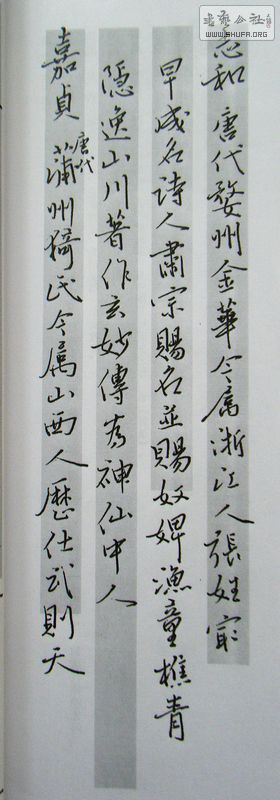 志和 唐代婺州金華今属浙江人張姓宗
早成名詩人肅宗賜名並賜奴婢漁童樵青
隠逸山川著作玄妙傳為神仙中人
嘉貞 唐代蒲州猗氏今属山西人歷仕武則天
书艺公社
WWW.SHUFA.ORG